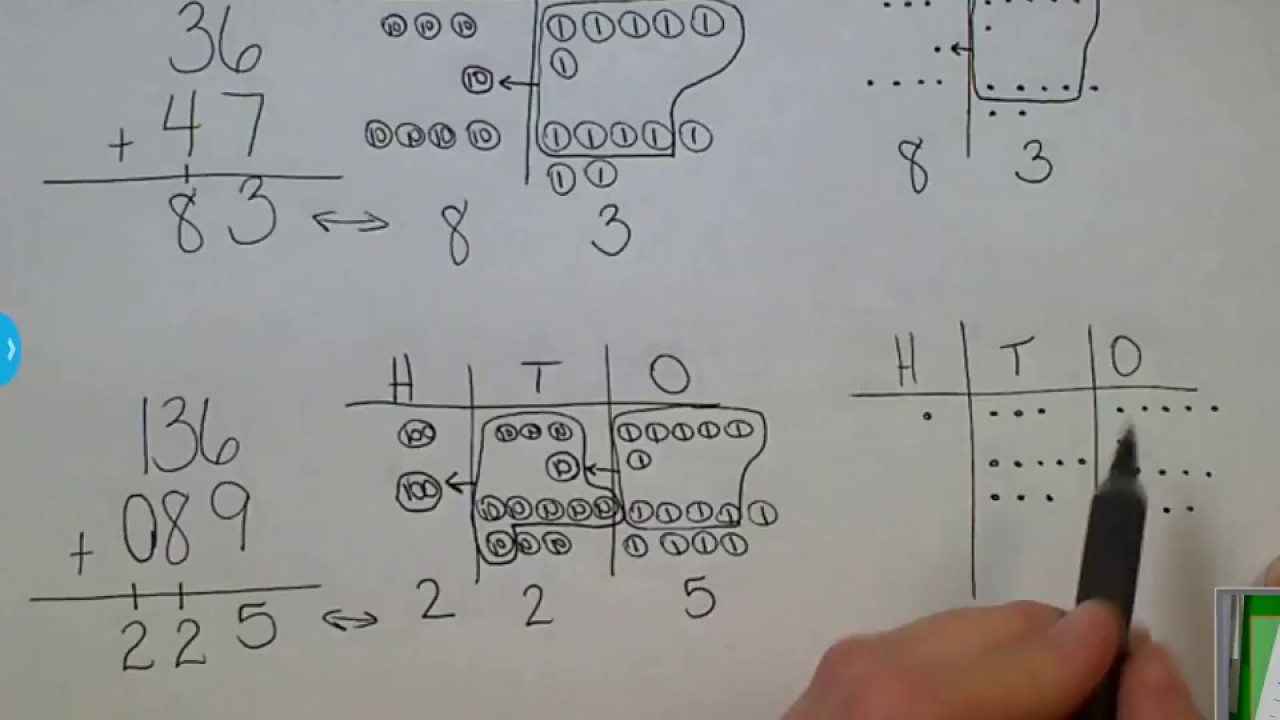 36
+ 47
83 ↔ 8 3
10 10 10
10
10 10 10 10
1 1 1 1 1
1
1 1 1 1 1
1 1
8 3
136
+ 089
225 ↔ 2 2 5
H T O
100 10 10 10 1 1 1 1 1
100 10 1
10 10 10 10 10 1 1 1 1 1
10 10 10 1 1 1 1
H T O